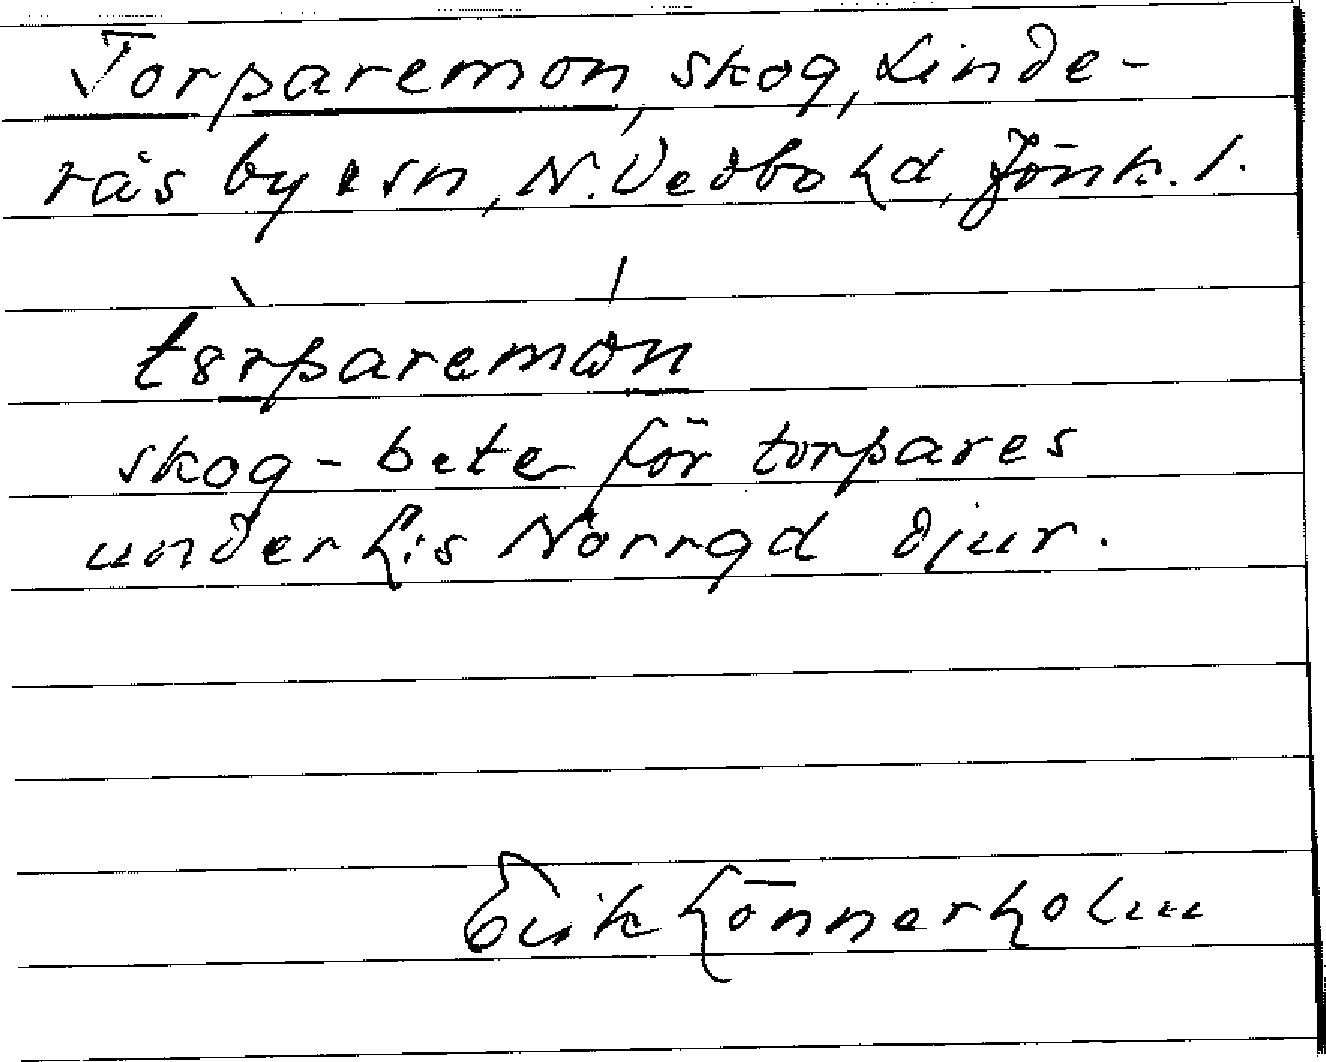 Torparemon, skog, Linde-
rås by o sn, N. Vedbo hd, Jönk. l.
tørparemɷn
skog - bete för torpares
under L:s Norrgd djur.
Erik Lönnerholm